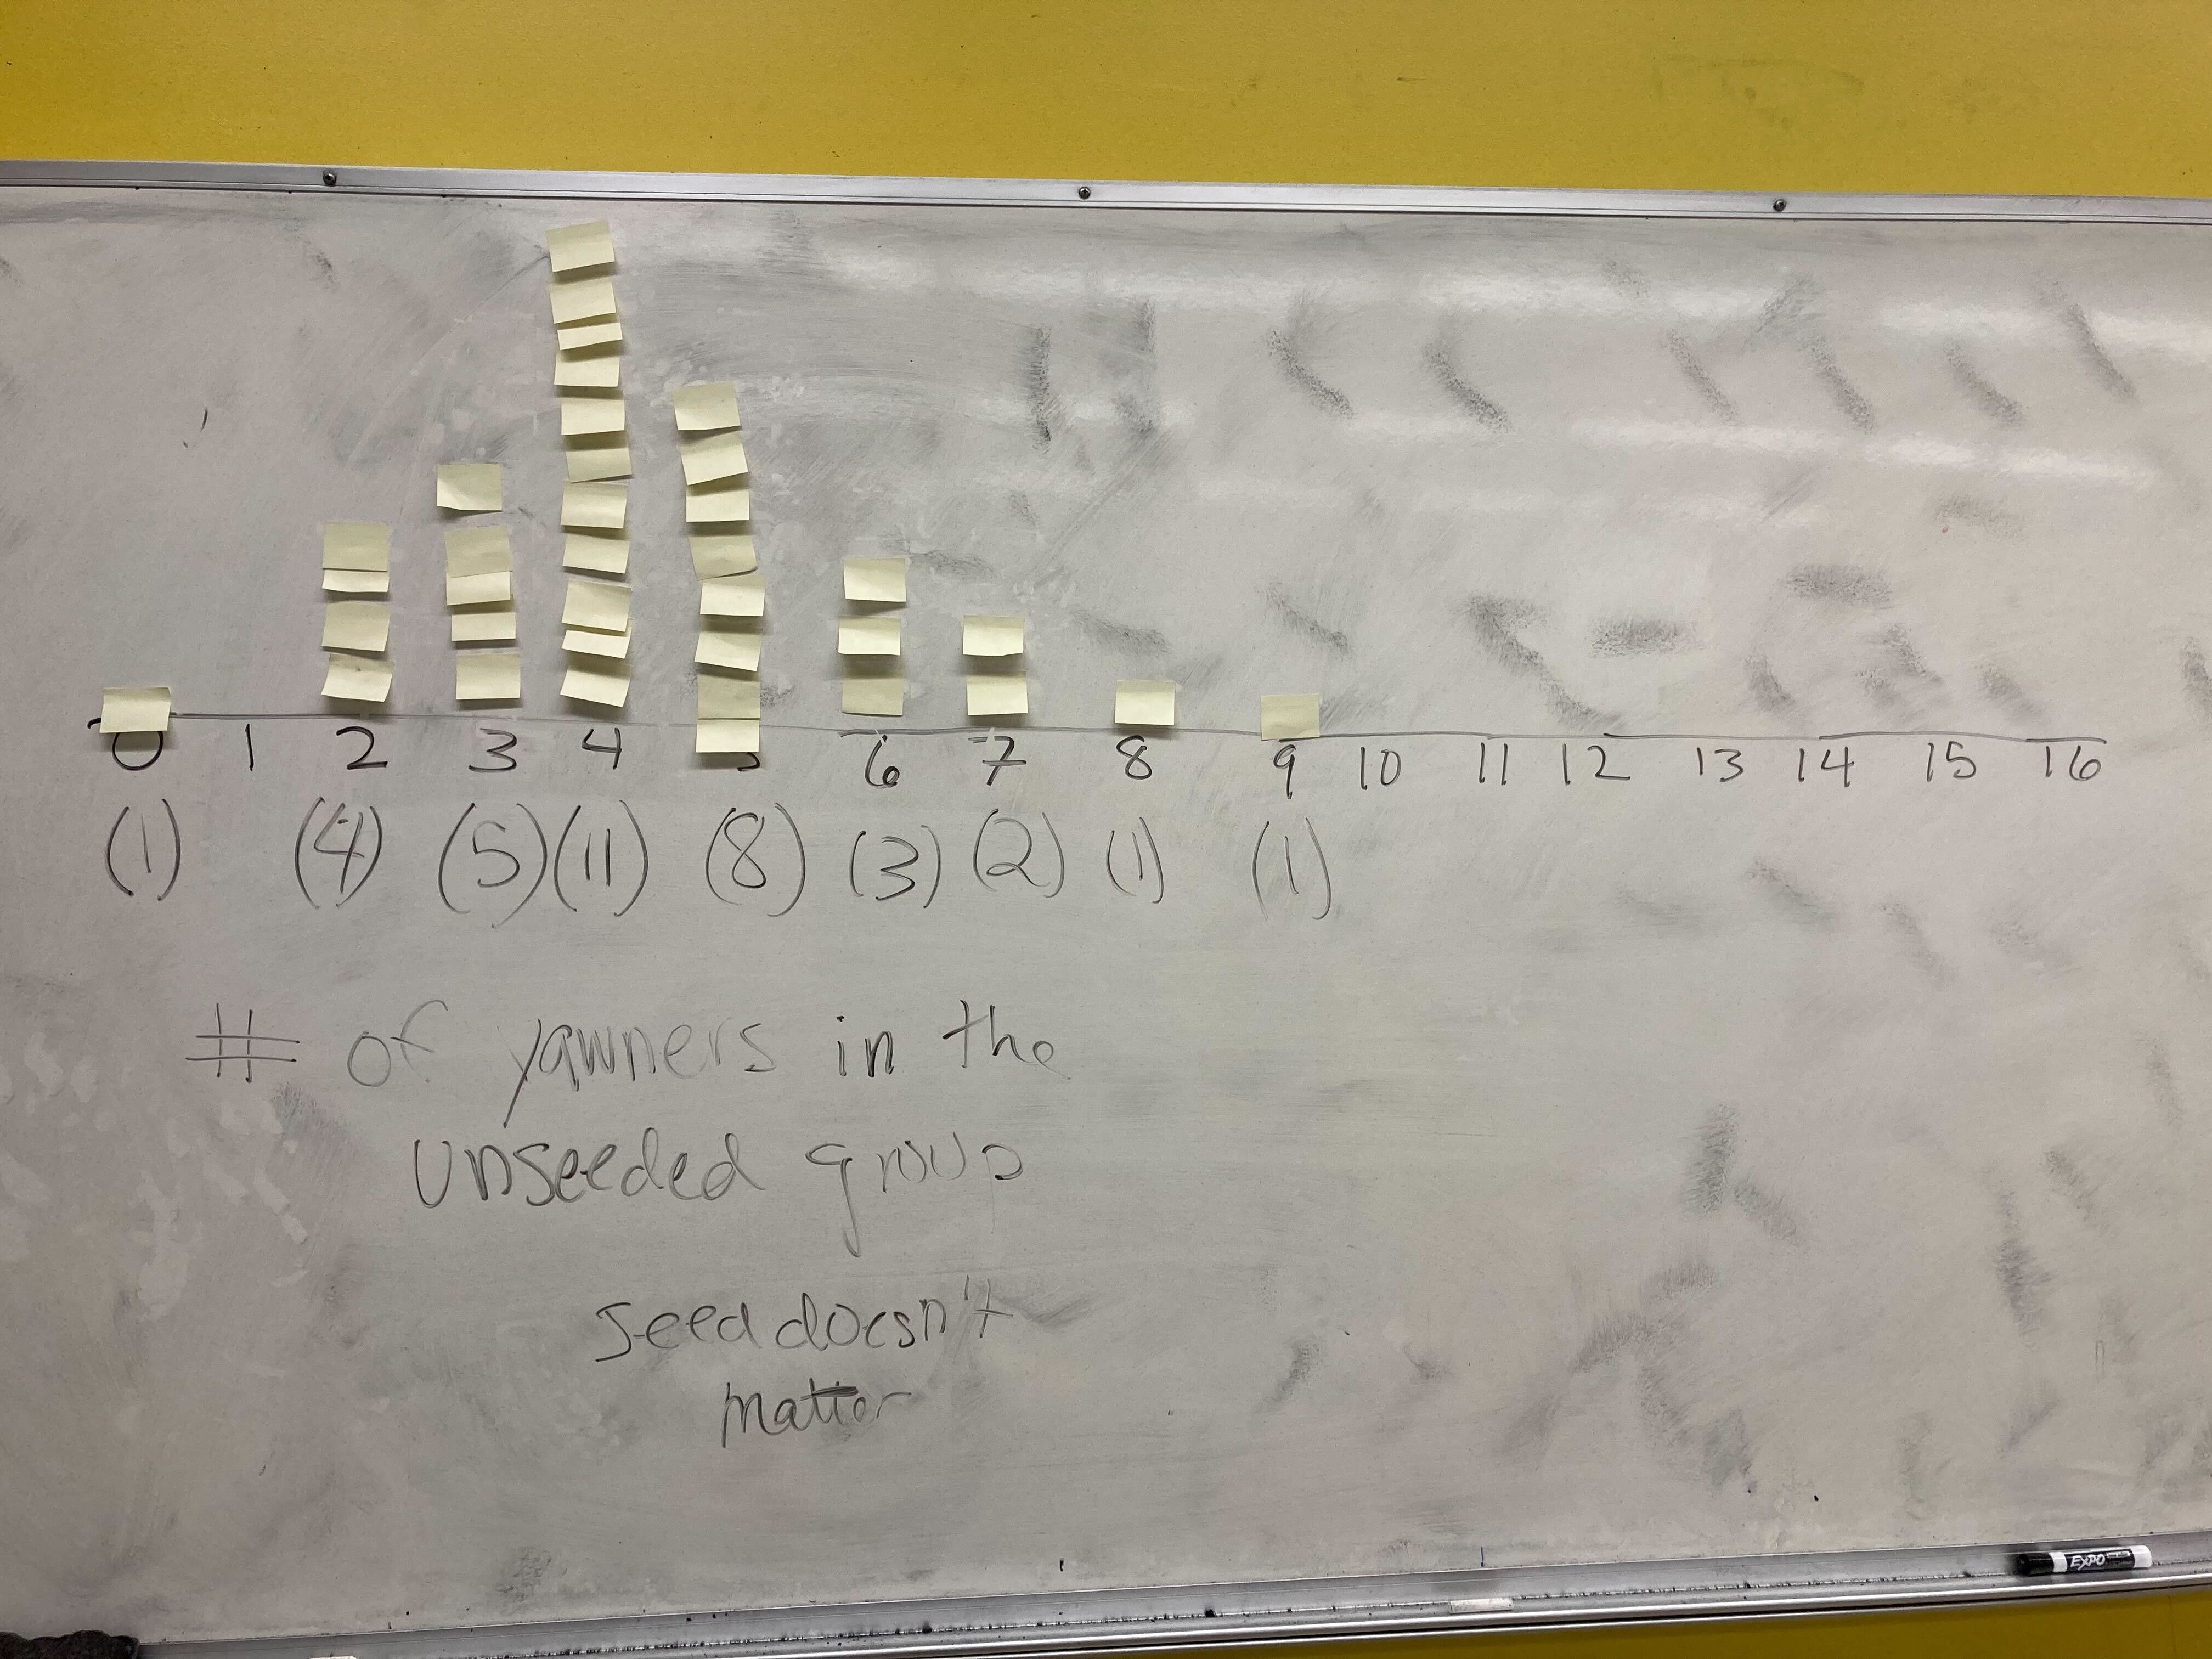 0 1 2 3 4 5 6 7 8 9 10 11 12 13 14 15 16
(1) (4) (5) (11) (8) (3) (2) (1) (1)
# of yawners in the
unseeded group
seed doesn't
matter
EXPO